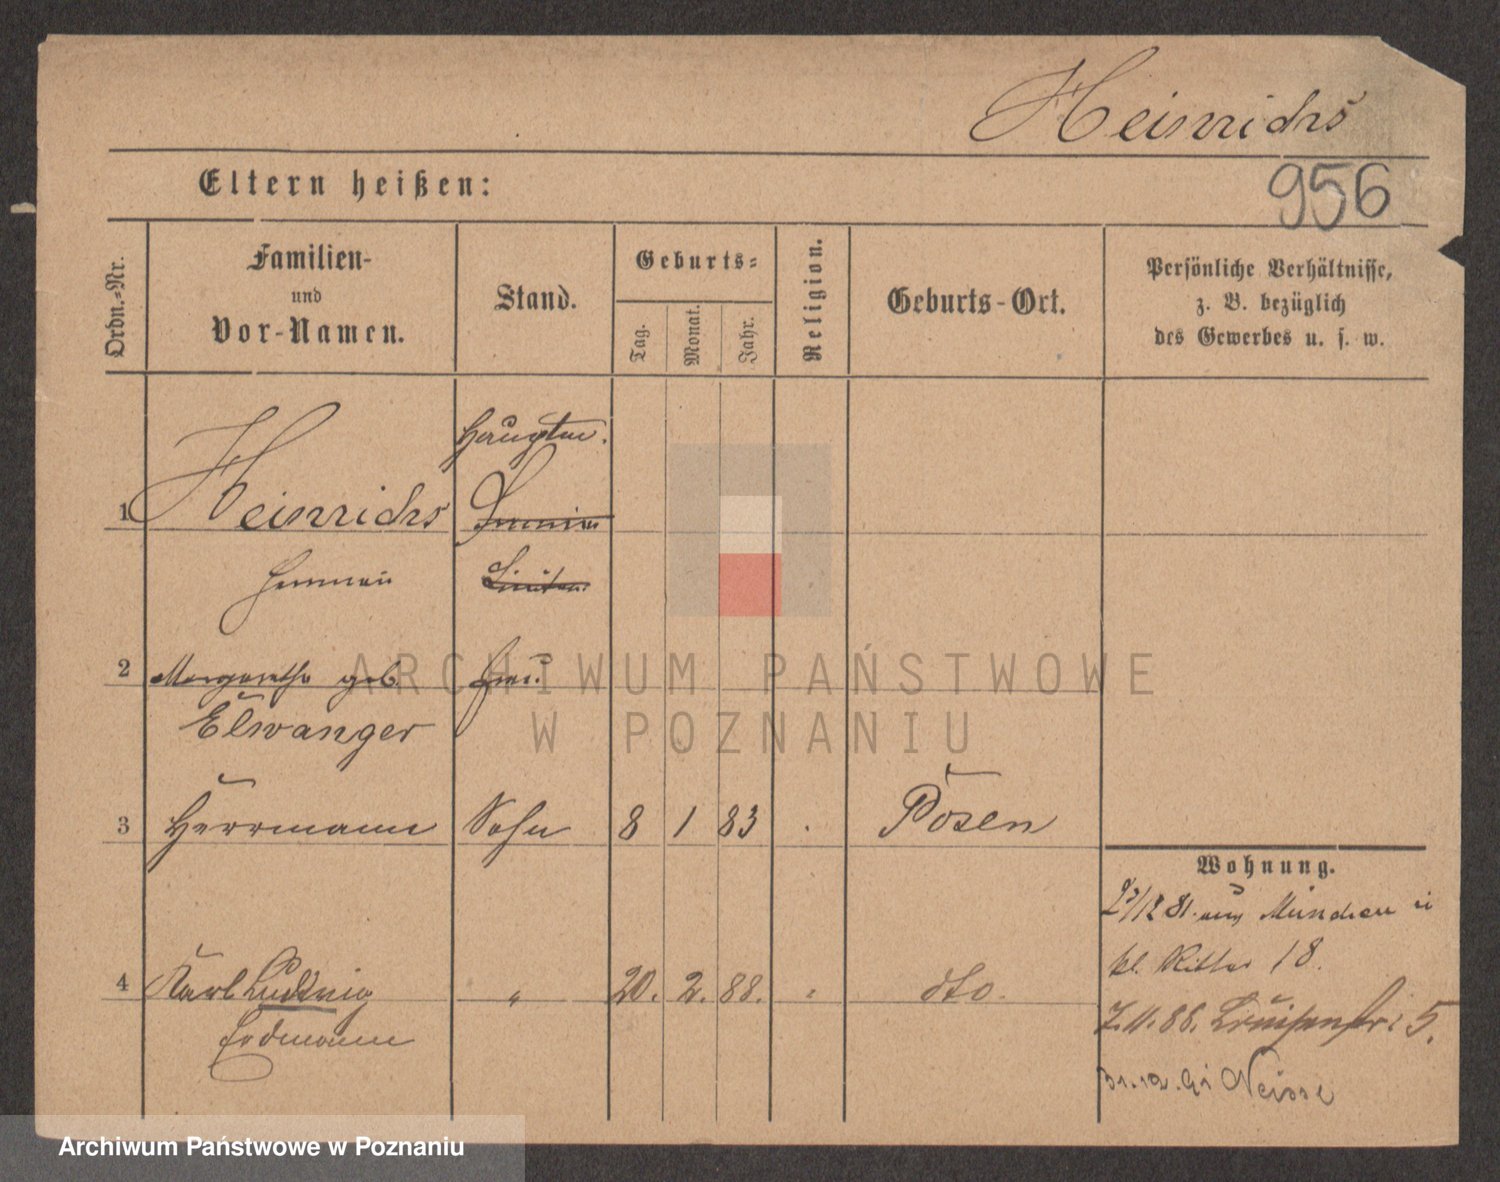 Heinrichs
Eltern heißen:
956
Ordn.=Nr.
Familien-
und
Vor-Namen.
Stand.
Geburts=
Tag.
Monat.
Jahr.
Religion.
Geburts-Ort.
Persönliche Verhältnisse,
z. B. bezüglich
des Gewerbes u. s. w.
Hauptm.
1 Heinrichs
2 Margarethe geb. Frau
Elwanger
3 Herrmann Sohn 8 1 83 Posen
Wohnung.
23/12 81. aus München
4 Karl Ludwig " 20. 2. 88. " dto.
kl. Ritter 18.
Erdmann
7.11.86. Louisenstr 5.
Neisse
ARCHIWUM PAŃSTWOWE
W POZNANIU
Archiwum Państwowe w Poznaniu